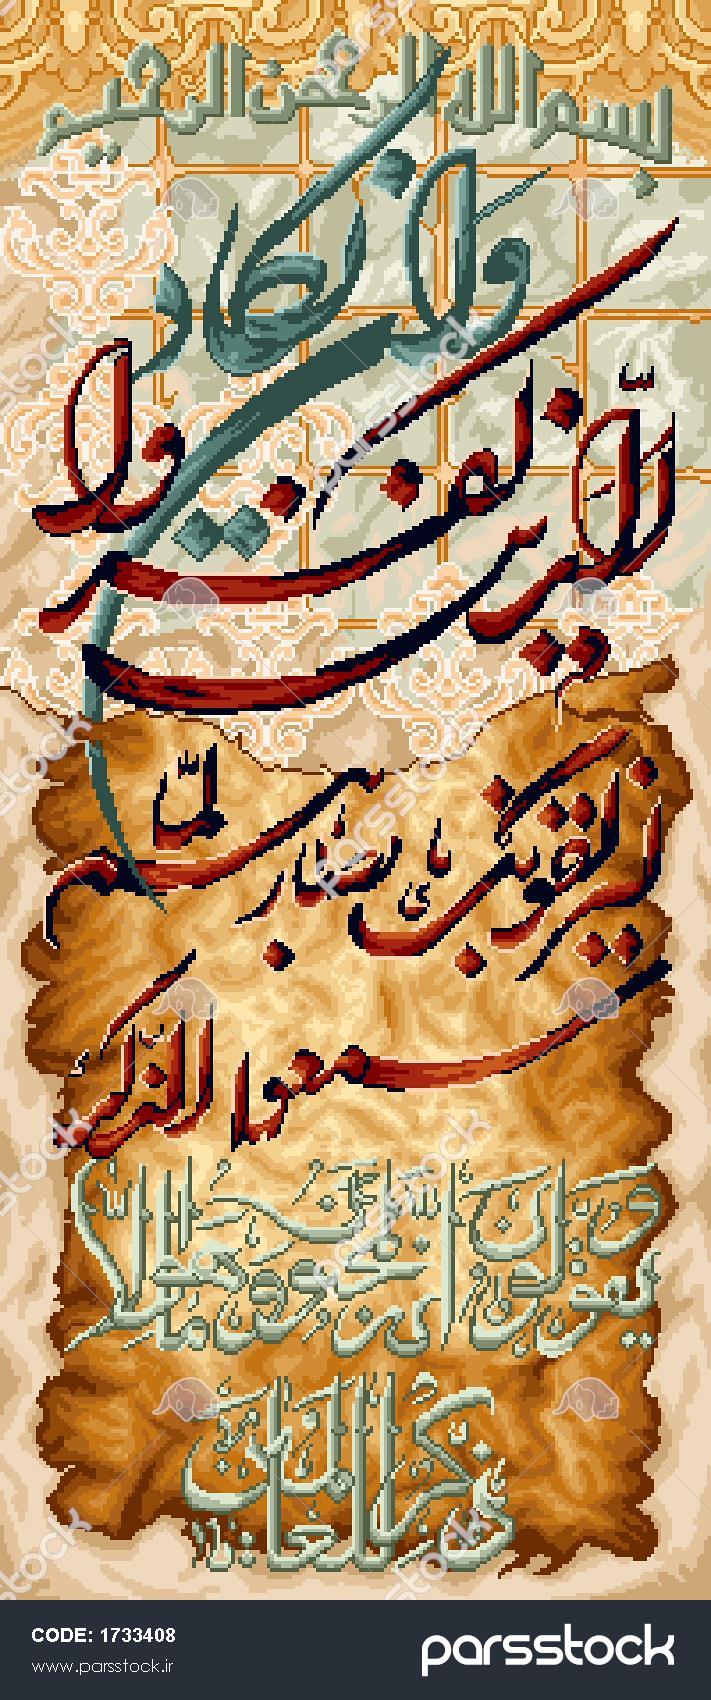 بسم الله الرحمن الرحیم
وان یکاد
الذین کفروا
لیزلقونک بابصارهم لما
سمعوا الذکر
و یقولون انه لمجنون و ما هو الا
ذکر للعالمین
parsstock
CODE: 1733408
www.parsstock.ir